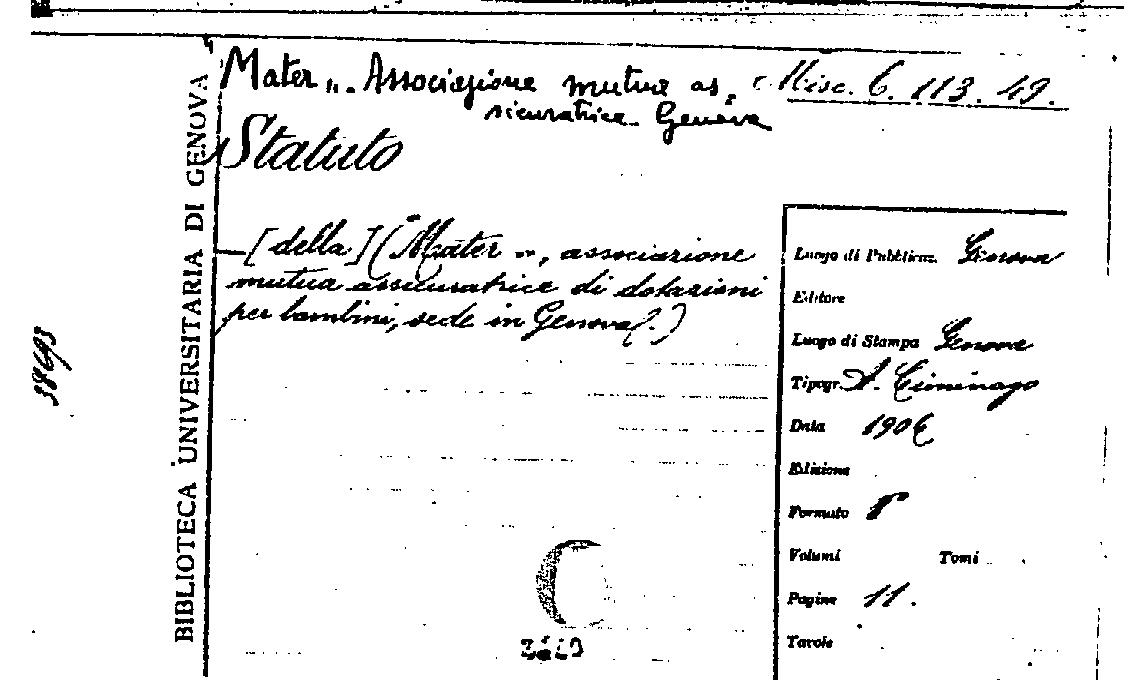 Mater „. Associazione mutua as, Misc. 6. 113. 49.
sicuratrice. Genova
Statuto
BIBLIOTECA UNIVERSITARIA DI GENOVA
38693
— [della] („Mater „, associazione
mutua assicuratrice di dotazioni
per bambini, sede in Genova(.)
Luogo di Pubblicaz. Genova
Editore
Luogo di Stampa Genova
Tipogr. A. Ciminago
Data 1906
Edizione
Formato 8°
Volumi Tomi
Pagine 11.
Tavole